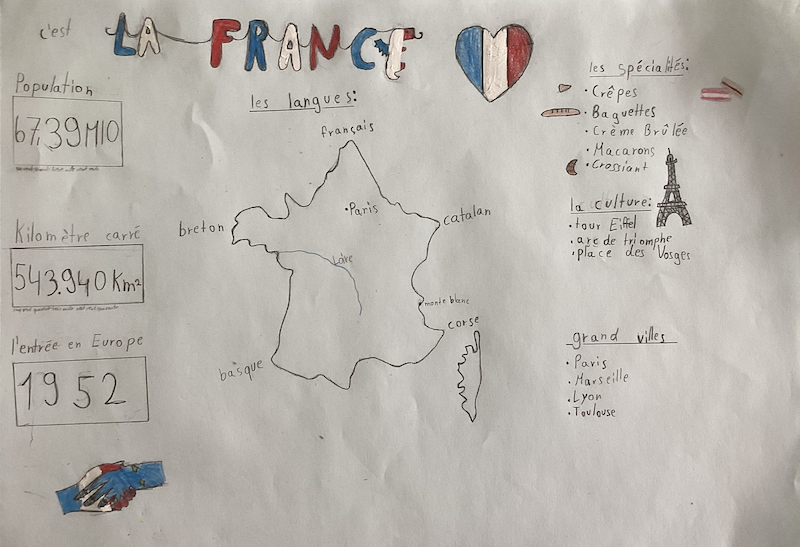 c'est LA FRANCE
Population
67,39MIO
Kilomètre carré
543.940 Km²
l'entrée en Europe
1952
les langues:
français
breton
catalan
•Paris
Loire
monte blanc
corse
basque
les spécialités:
• Crêpes
• Baguettes
• Crème Brûlée
• Macarons
• Crossiant
la culture:
• tour Eiffel
• arc de triomphe
• place des Vosges
grand villes
• Paris
• Marseille
• Lyon
• Toulouse